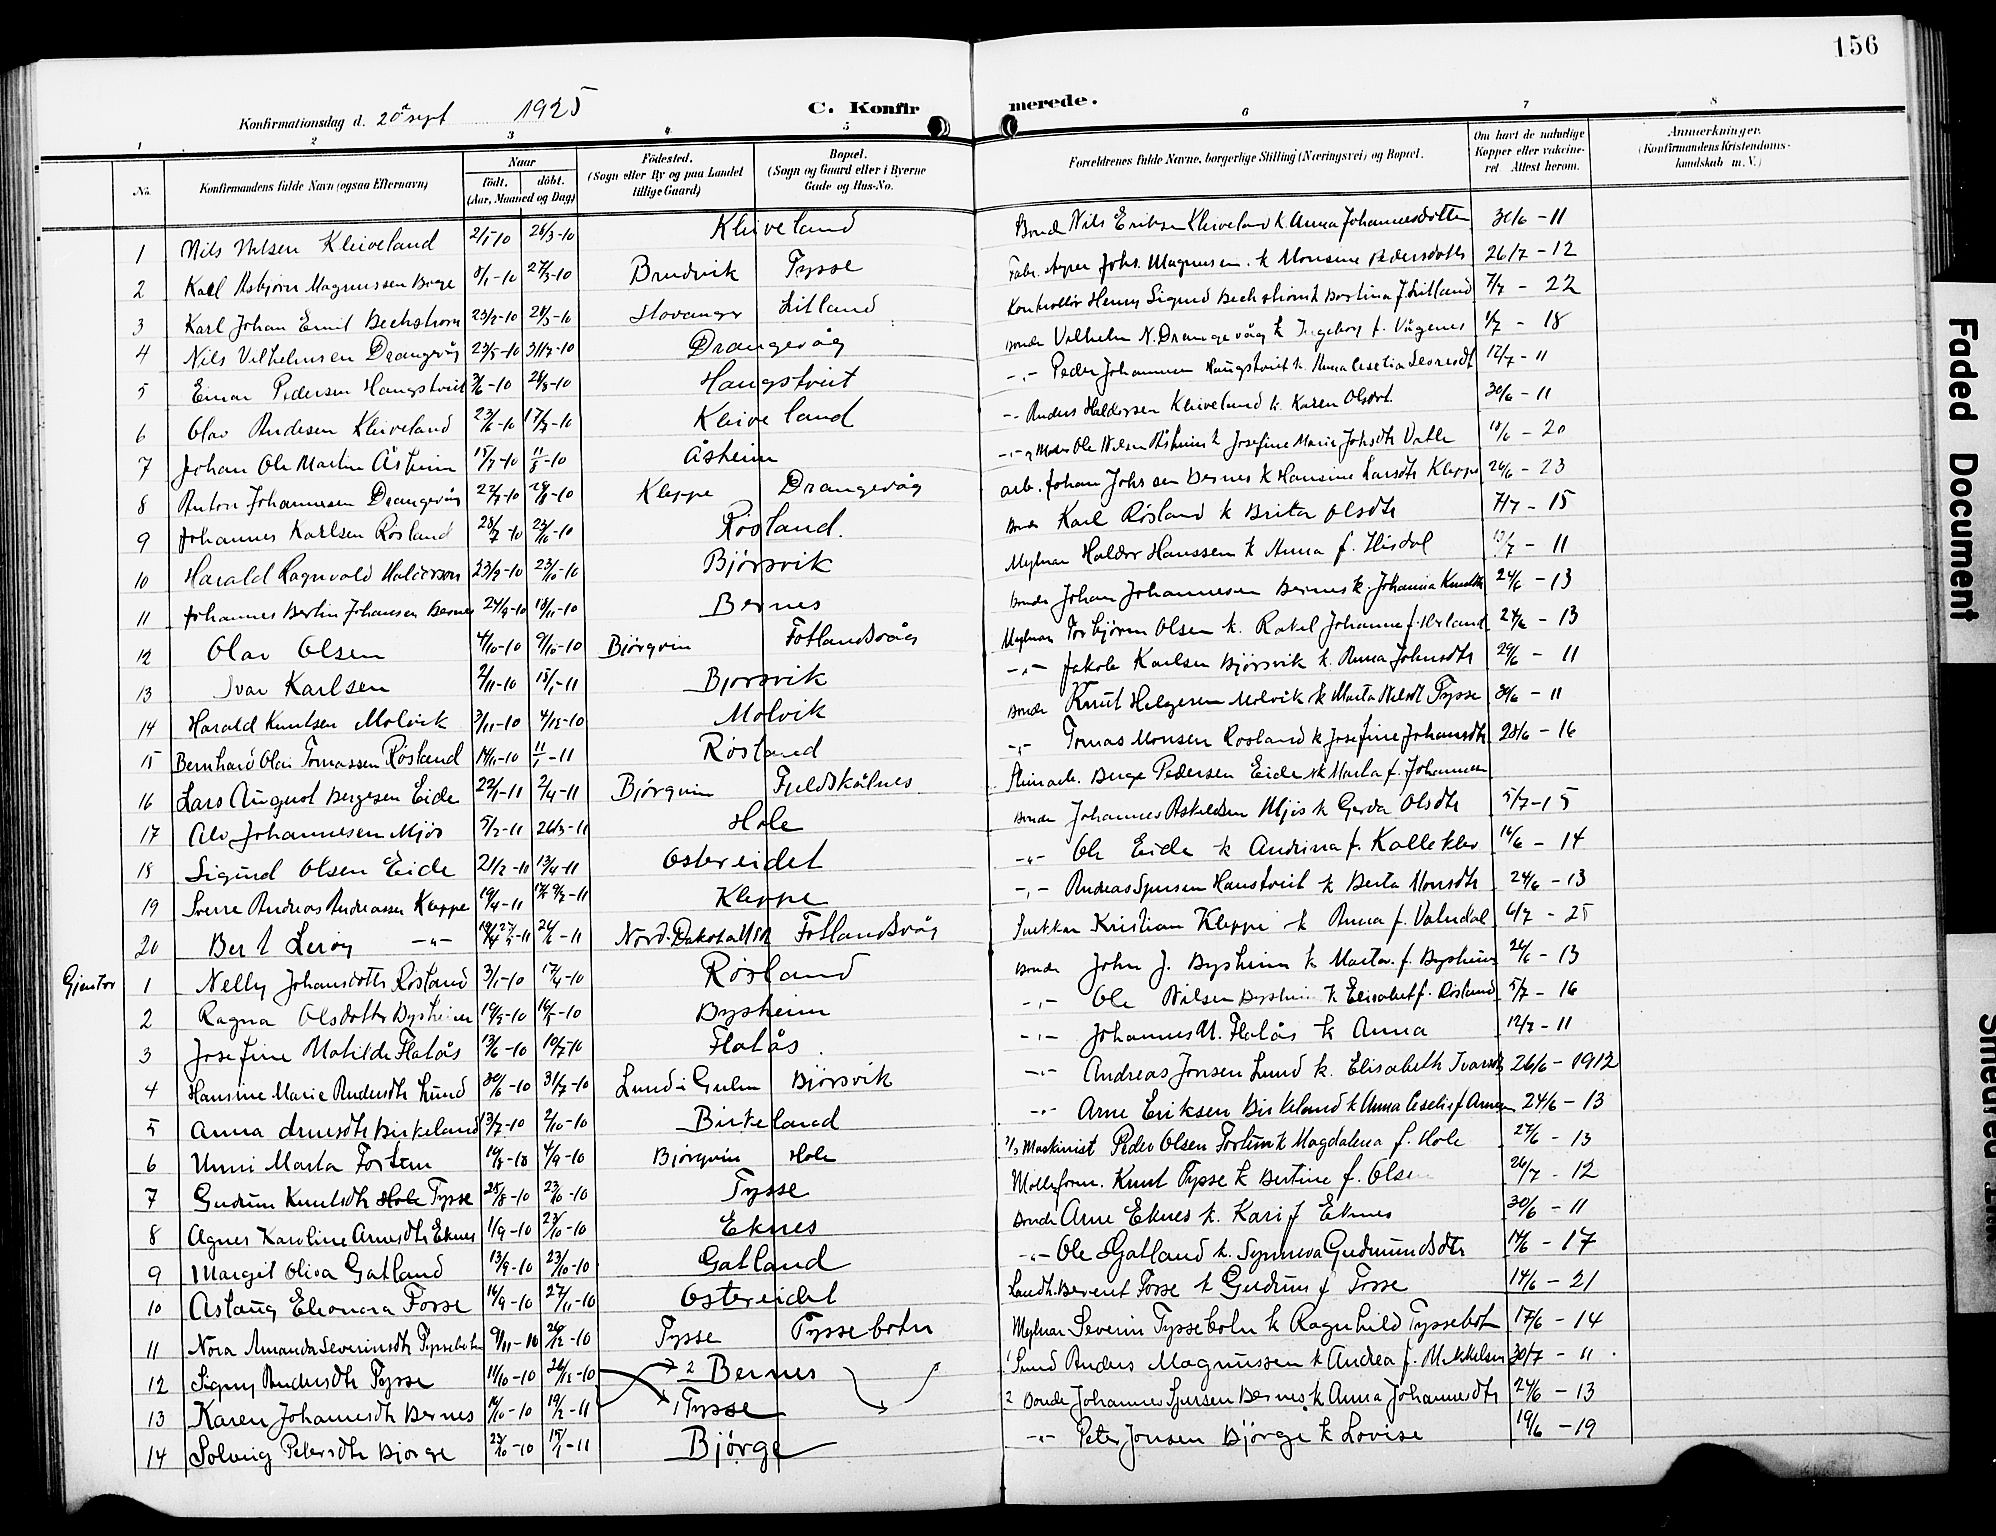 156
Konfirmationsdag d. 20 sept 1925 C. Konfirmerede.
1 2 3 4 5 6 7 8
No. Konfirmandens fulde Navn (ogsaa Efternavn) Naar født. døbt. (Aar, Maaned og Dag) Fødested. (Sogn eller By og paa Landet tillige Gaard) Bopæl. (Sogn og Gaard eller i Byerne Gade og Hus-No. Forældrenes fulde Navne, borgerlige Stilling (Næringsvei) og Bopæl. Om havt de naturlige Kopper eller vakcineret Attest herom. Anmerkninger. (Konfirmandens Kristendomskundskab m. V.)
1 Nils Nilsen Kleiveland 2/1-10 26/3-10 Kleiveland Bonde Nils Eriksen Kleiveland k. Anna Johannesdotter 30/6-11
2 Karl Asbjørn Magnussen Boge 8/1-10 27/3-10 Brudvik Tysse Johs. Magnussen k Monsine Pedersdotter 26/7-12
3 Karl Johan Emil Bechstrøm 23/2-10 Stavanger Litland Kontrollør Henry Sigurd Bechstrøm k Bertina f. Litland 7/7-22
4 Nils Vilhelmsen Drangevåg 23/5-10 31/7-10 Drangevåg Bonde Vilhelm N. Drangevåg k Ingeborg f. Vågenes 1/7-18
5 Einar Pedersen Haugstveit 3/6-10 28/8-10 Haugstveit -"- Peder Johannesen Haugstveit k. Anna 12/7-11
6 Olav Andersen Kleiveland 23/6-10 17/7-10 Kleiveland -"- Anders Haldorsen Kleiveland k. Karen Olsdt. 30/6-11
7 Johan Ole Martin Åsheim 15/7-10 11/8-10 Åsheim Ole Nilsen Åsheim k Josefine Marie Johsdtr Vatle 18/6-20
8 Anton Johannesen Drangevåg 22/7-10 28/8-10 Kleppe Drangevåg arb. Johan Johssen Bernes k Hansine Larsdtr Kleppe 26/6-23
9 Johannes Karlsen Røsland 28/7-10 23/10-10 Røsland. Bonde Karl Røsland k Brita Olsdtr 7/7-15
10 Harald Ragnvald Haldorsen 23/9-10 23/10-10 Bjørsvik Mylnar Haldor Hanssen k Anna f. Hisdal 13/7-11
11 Johannes Bertin Johansen Bernes 24/9-10 18/11-10 Bernes Bonde Johan Johannesen Bernes k. Johanna Knudsdtr 24/6-13
12 Olav Olsen 4/10-10 9/10-10 Bjørgvin Fotlandsvåg Mylnar Torbjørn Olsen k. Rakel Johanne f. Herland 24/6-13
13 Ivar Karlsen 2/11-10 15/1-11 Bjørsvik -"- Jakob Karlsen Bjørsvik k. Anna Johnsdtr 29/6-11
14 Harald Knutsen Molvik 3/11-10 4/12-10 Molvik Bonde Knut Helgesen Molvik k Marta Nilsdt Tysse 30/6-11
15 Bernhard Olai Tomassen Røsland 14/11-10 11/1-11 Røsland -"- Tomas Monsen Røsland k Josefine Johansdtr 28/6-16
16 Lars August Bergesen Eide 22/1-11 2/4-11 Bjørgvin Fuldskålnes Steinarb. Berge Pedersen Eide k Marta f. Johannesen
17 Alv Johannesen Mjøs 5/2-11 26/3-11 Hole Bonde Johannes Askeldsen Mjøs k Gerda Olsdtr 5/7-15
18 Sigurd Olsen Eide 21/2-10 13/4-11 Ostereidet -"- Ole Eide k Andrina f. Kalleklev 16/6-14
19 Sverre Andreas Andreassen Kleppe 19/4-11 Kleppe -"- Andreas Sjursen Haustveit k Berta Monsdtr 24/6-13
20 Bert Leroy -"- 24/6-11 Nord-Dakota USA Fotlandsvåg Snekkar Kristian Kleppe k Anna f. Valndal 6/7-25
Gjentor 1 Nelly Johansdotter Røsland 3/1-10 17/4-10 Røsland Bonde John J. Bysheim k Marta f. Bysheim 26/6-13
2 Ragna Olsdotter Bysheim 19/3-10 16/5-10 Bysheim -"- Ole Nilsen Bysheim k Elisabet f. Røsland 5/7-16
3 Josefine Matilde Flatås 13/6-10 10/7-10 Flatås -"- Johannes N. Flatås k Anna 12/7-11
4 Hansine Marie Andersdtr Lund 30/6-10 31/7-10 Lund i Gulen Bjørsvik -"- Andreas Jonsen Lund k. Elisabeth Ivarsdtr 26/6-1912
5 Anna Arnesdtr Birkeland 13/7-10 2/10-10 Birkeland -"- Arne Eriksen Birkeland k Anna 24/6-13
6 Unni Marta Fortun 4/9-10 Bjørgvin Hole Maskinist Peder Olsen Fortun k Magdalena f. Hole 24/6-13
7 Gudrun Knutsdtr Hole Tysse 28/8-10 23/10-10 Tysse Mølleform. Knut Tysse k Bertine f. Olsen 26/7-12
8 Agnes Karoline Arnesdtr Eknes 1/9-10 23/10-10 Eknes Bonde Arne Eknes k. Kari f Eknes 30/6-11
9 Margit Oliva Gatland 13/9-10 23/10-10 Gatland -"- Ole Gatland k. Synneva Gudmundsdtr 14/6-17
10 Aslaug Eleonora Fosse 16/9-10 27/11-10 Ostereidet Landh. Berent Fosse k Gudrun f Fosse 14/6-21
11 Nora Amanda Severinsdtr Tyssebotn 9/11-10 26/12-10 Tysse Tyssebotn Mylnar Severin Tyssebotn k Ragnhild Tyssebot 17/6-14
12 Signy Andersdtr Tysse 11/10-10 26/12-10 2 Bernes 1 Smed Anders Magnussen k Andrea f. Mikkelsen 30/7-11
13 Karen Johannesdtr Bernes 14/10-10 19/2-11 1 Tysse 2 Bonde Johannes Sjursen Bernes k Anna Johannesdtr 24/6-13
14 Solveig Petersdtr Bjørge 23/10-10 15/1-11 Bjørge -"- Peter Jonsen Bjørge k Lovise 19/6-19
Faded Document
Smeared Ink